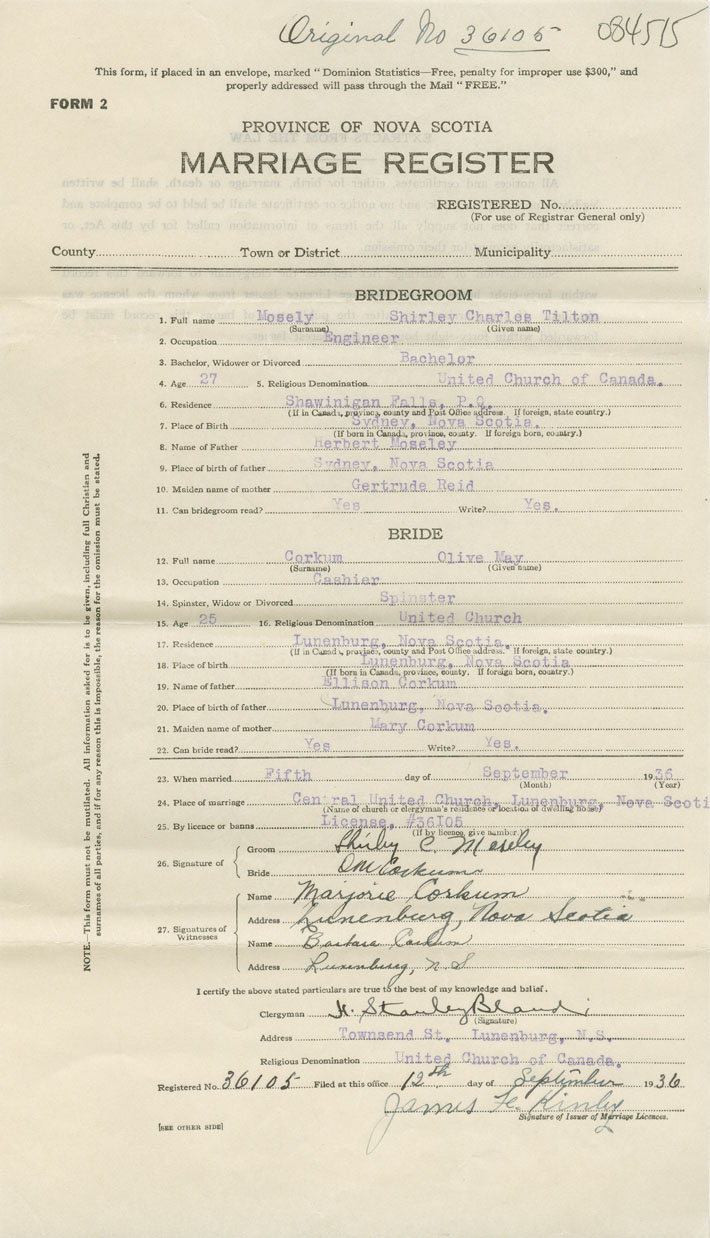 Original No 36105 084515
This form, if placed in an envelope, marked "Dominion Statistics—Free, penalty for improper use $300," and
properly addressed will pass through the Mail "FREE."
FORM 2
PROVINCE OF NOVA SCOTIA
MARRIAGE REGISTER
REGISTERED No.
(For use of Registrar General only)
County Town or District Municipality
BRIDEGROOM
1. Full name Mosely Shirley Charles Tilton
(Surname) (Given name)
2. Occupation Engineer
3. Bachelor, Widower or Divorced Bachelor
4. Age 27 5. Religious Denomination United Church of Canada.
6. Residence Shawinigan Falls, P.Q.
(If in Canada, province, county and Post Office address. If foreign, state country.)
7. Place of Birth Sydney, Nova Scotia.
(If born in Canada, province, county. If foreign born, country.)
8. Name of Father Herbert Moseley
9. Place of birth of father Sydney, Nova Scotia
10. Maiden name of mother Gertrude Reid
11. Can bridegroom read? Yes Write? Yes.
BRIDE
12. Full name Corkum Olive May
(Surname) (Given name)
13. Occupation Cashier
14. Spinster, Widow or Divorced Spinster
15. Age 25 16. Religious Denomination United Church
17. Residence Lunenburg, Nova Scotia.
(If in Canada, province, county and Post Office address. If foreign, state country.)
18. Place of birth Lunenburg, Nova Scotia
(If born in Canada, province, county. If foreign born, country.)
19. Name of father Ellison Corkum
20. Place of birth of father Lunenburg, Nova Scotia.
21. Maiden name of mother Mary Corkum
22. Can bride read? Yes Write? Yes.
23. When married Fifth day of September 1936
(Month) (Year)
24. Place of marriage Central United Church, Lunenburg, Nova Scoti
(Name of church or clergyman's residence or location of dwelling house)
25. By licence or banns License, #36I05
(If by licence, give number)
26. Signature of
Groom Shirley C. Moseley
Bride O M Corkum
27. Signatures of Witnesses
Name Marjorie Corkum
Address Lunenburg, Nova Scotia
Name Barbara Corkum
Address Lunenburg, N S
I certify the above stated particulars are true to the best of my knowledge and belief.
Clergyman H. Stanley Bland
(Signature)
Address Townsend St. Lunenburg, N.S.
Religious Denomination United Church of Canada.
Registered No. 36105 Filed at this office 12th day of September 1936
James
Signature of Issuer of Marriage Licences.
[SEE OTHER SIDE]
NOTE.—This form must not be mutilated. All information asked for is to be given, including full Christian and
surnames of all parties, and if for any reason this is impossible, the reason for the omission must be stated.